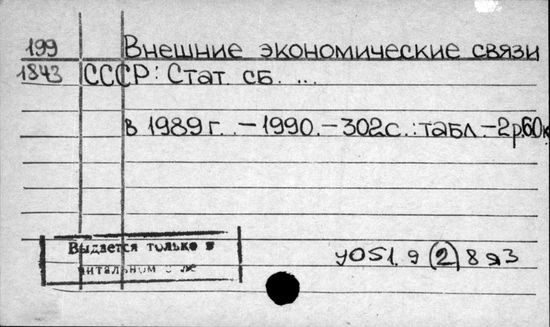 199 Внешние экономические связи
1843 СССР: Стат. сб. ...
в 1989 г. - 1990. - 302 с. : табл. - 2р.60к
Выдается только в
читальном зале
У051.9(2)8я3